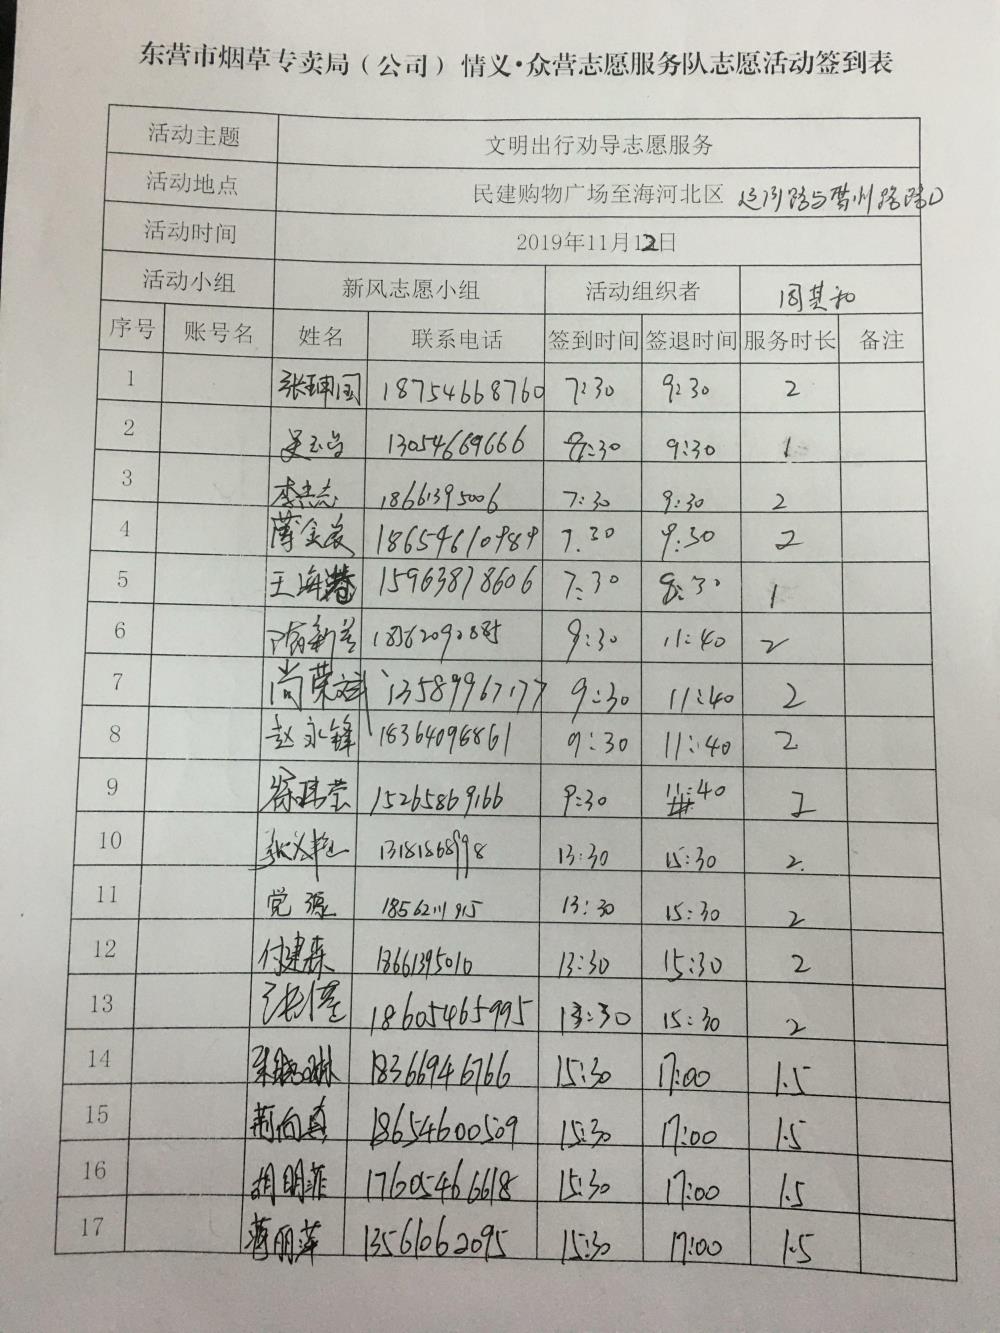 东营市烟草专卖局（公司）情义·众营志愿服务队志愿活动签到表
活动主题 文明出行劝导志愿服务
活动地点 民建购物广场至海河北区 路与 州路路口
活动时间 2019年11月12日
活动小组 新风志愿小组 活动组织者 周其和
序号 账号名 姓名 联系电话 签到时间 签退时间 服务时长 备注
1 张珅国 18754668760 7:30 9:30 2
2 13054669666 8:30 9:30 1
3 18661395006 7:30 9:30 2
4 薄金 18654610989 7:30 9:30 2
5 王海港 15963878606 7:30 8:30 1
6 隋新 18562092885 9:30 11:40 2
7 尚荣斌 13589967177 9:30 11:40 2
8 赵永锋 18364096861 9:30 11:40 2
9 徐 莹 15265869166 9:30 11:40 2
10 张 艳 13181868998 13:30 15:30 2
11 党源 13:30 15:30 2
12 付建森 18661395010 13:30 15:30 2
13 张 18605465995 13:30 15:30 2
14 18366946766 15:30 17:00 1.5
15 荆向真 18654600509 15:30 17:00 1.5
16 胡明菲 17605466618 15:30 17:00 1.5
17 蒋丽萍 13561062095 15:30 17:00 1.5